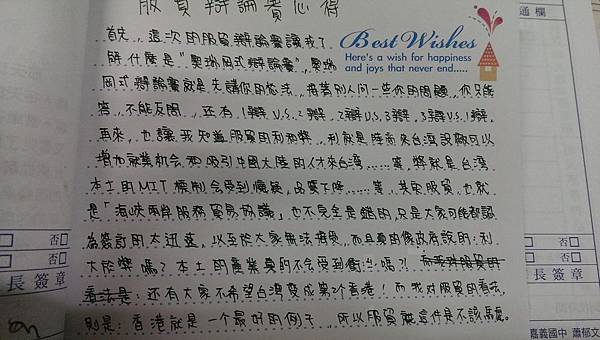 服貿辯論賽心得
首先,這次的服貿辯論賽讓我了
解什麼是"奧瑞岡式辯論賽",奧瑞
岡式辯論賽就是先講你的想法,接著別人問一些你的問題,你只能
答,不能反問,還有1辯V.S.2辯,2辯V.S.3辯,3辯V.S.1辯,
再來,也讓我知道服貿的利和弊,利就是陸商來台灣設廠可以
增加就業机会和吸引中國大陸的人才來台灣……等,弊就是台灣
本土的MIT機制会受到懷疑,品質下降……等,其實服貿,也就
是「海峽兩岸服務貿易協議」也不完全是錯的,只是大家可能都認
為簽訂的太迅速,以至於大家無法接受,而且真的像政府說的:利
大於弊嗎?本土的產業真的不会受到衝擊嗎?!而我對服貿的
看法是:還有大家不希望台灣變成第2个香港!而我对服貿的看法
則是:香港就是一个最好的例子,所以服貿就這件是不該馬虎。
Best Wishes
Here's a wish for happiness
and joys that never end.....
通欄
否
否
長簽章
否
否
長簽章
嘉義國中 蕭郁文